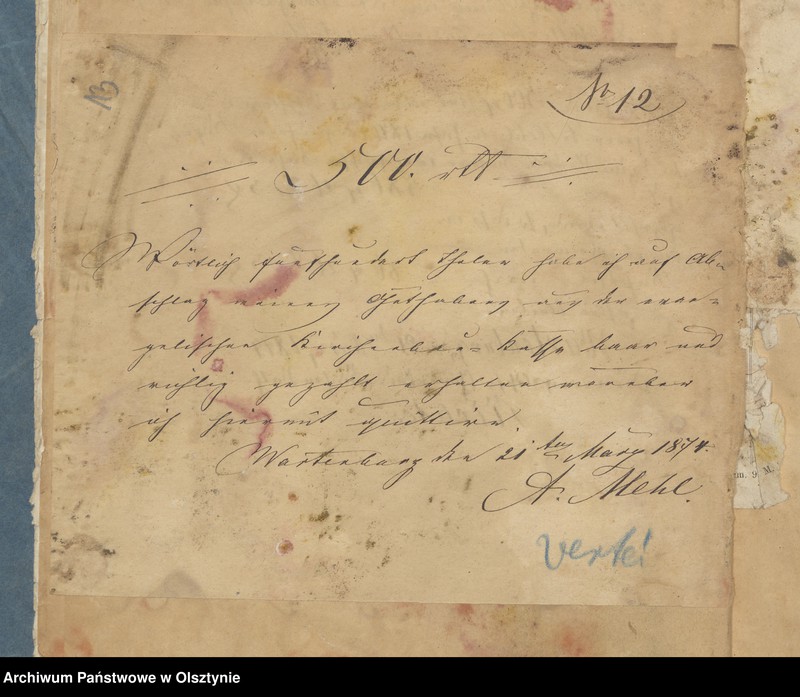 13
No 12
500. rtl.
Wörtlich fünfhundert Thaler habe ich auf Ab-
schlag meines Guthabens aus der evan-
gelischen Kirchenbau-Kasse baar und
richtig gezahlt erhalten worüber
ich hiermit quittire.
Wartenburg den 21ten März 1874.
A. Mehl.
verte!
m. 9. M.
Archiwum Państwowe w Olsztynie